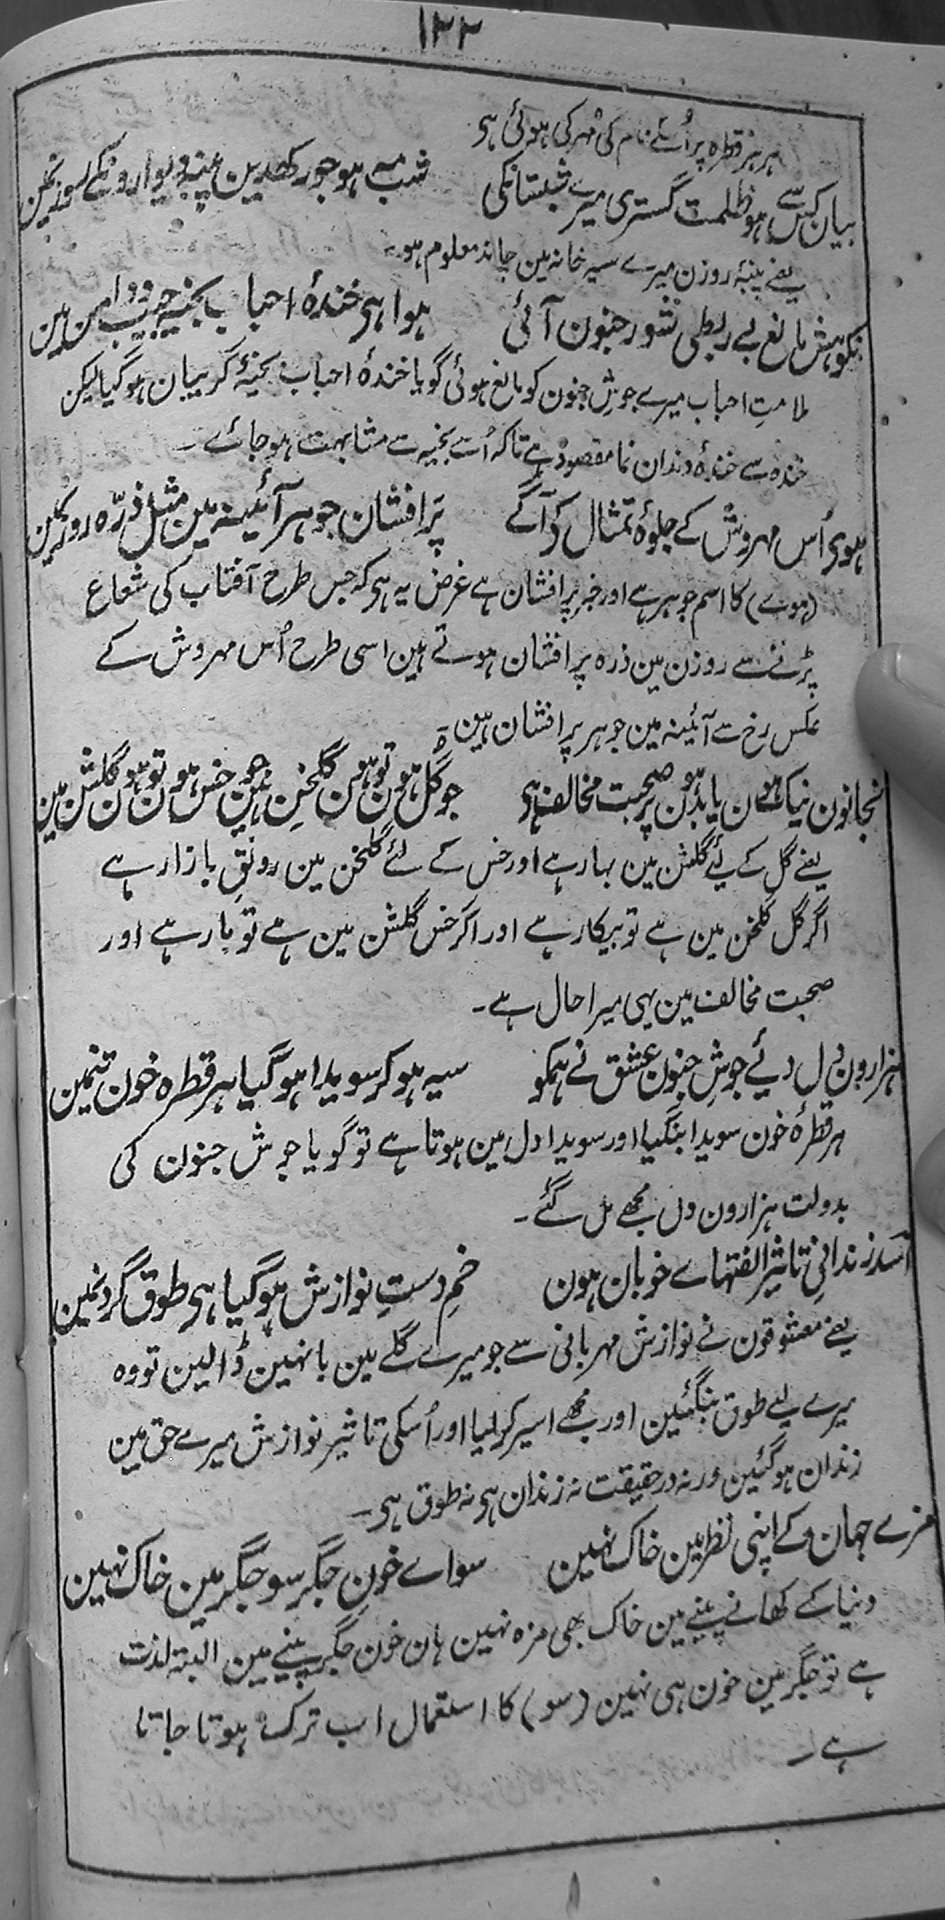 ۱۲۲
ہر ہر قطرہ پر اُسکے نام کی مُہر کی ہوئی ہی
بیان کس سے ہو ظلمت گستری میرے شبستانکی شب مہ ہو جو رکھدین پنبہ دیوارونکے روزنمین
یعنے پنبۂ روزن میرے سیہ خانہ مین چاند معلوم ہو۔
نکوہش مانع بے ربطی شور جنون آئی ہوا ہی خندۂ احباب بخیہ جیب و دامن مین
ملامتِ احباب میرے جوشِ جنون کو مانع ہوئی گویا خندۂ احباب بخیۂ گریبان ہوگیا لیکن
خندہ سے خندۂ دندان نما مقصود ہے تاکہ اُسے بخیہ سے مشابہت ہوجائے۔
ہوی اُس مہروش کے جلوۂ تمثال کے آگے پَر افشان جوہر آئینہ مین مثل ذرّہ روزنمین
(ہوے) کا اسم جوہر ہے اور خبر پر افشان ہے غرض یہ ہی کہ جس طرح آفتاب کی شعاع
پڑنے سے روزن مین ذرہ پر افشان ہوتے ہین اسی طرح اُس مہروش کے
عکس رخ سے آئینہ مین جوہر پر افشان ہین۔
نجانون نیک ہون یا بد ہون پر صحبت مخالف ہی جو گل ہون تو ہون گلخن مین جو خس ہون تو ہون گلشن مین
یعنے گل کے لئے گلشن مین بہار ہے اور خس کے لئے گلخن مین رونقِ بازار ہے
اگر گل گلخن مین ہے تو بیکار ہے اور اگر خس گلشن مین ہے تو بار ہے اور
صحبت مخالف مین یہی میرا حال ہے۔
ہزارون دل دئے جوشِ جنونِ عشق نے ہمکو سیہ ہو کر سویدا ہوگیا ہر قطرہ خون تنمین
ہر قطرۂ خون سویدا بنگیا اور سویدا دل مین ہوتا ہے تو گویا جوش جنون کی
بدولت ہزارون دل مجھے مل گئے۔
اسد زندانیِ تاثیر الفتہاے خوبان ہون خم دستِ نوازش ہوگیا ہی طوق گردنمین
یعنے معشوقون نے نوازش مہربانی سے جو میرے گلے مین بانہین ڈالین تو وہ
میرے لئے طوق بنگئین اور مجھے اسیر کرلیا اور اُسکی تاثیر نوازش میرے حق مین
زندان ہوگئین ورنہ در حقیقت نہ زندان ہی نہ طوق ہی۔
مزے جہان کے اپنی نظر مین خاک نہین سواے خون جگر سو جگر مین خاک نہین
دنیا کے کھانے پینے مین خاک بھی مزہ نہین ہان خون جگر پینے مین البتہ لذت
ہے تو جگر مین خون ہی نہین (سو) کا استعمال اب ترک ہوتا جاتا
ہے۔